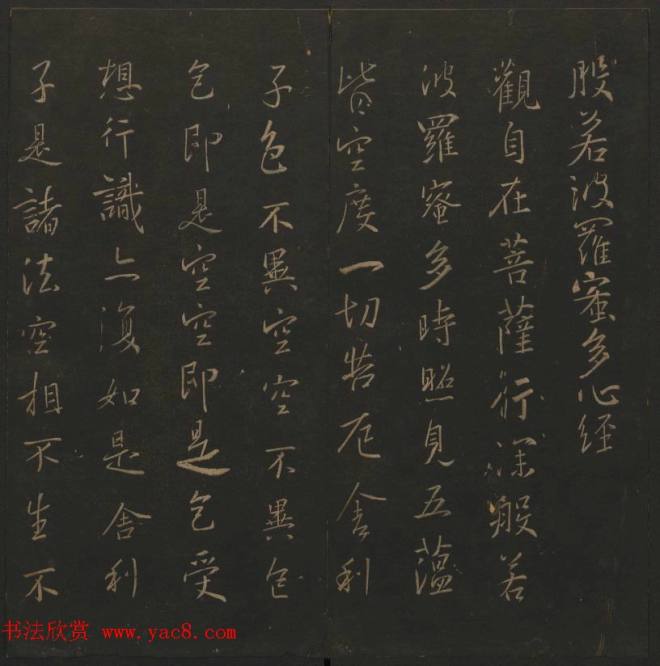 般若波羅蜜多心経
觀自在菩薩行深般若
波羅蜜多時照見五蘊
皆空度一切苦厄舍利
子色不異空空不異色
色即是空空即是色受
想行識亦復如是舍利
子是諸法空相不生不
书法欣赏 www.yac8.com